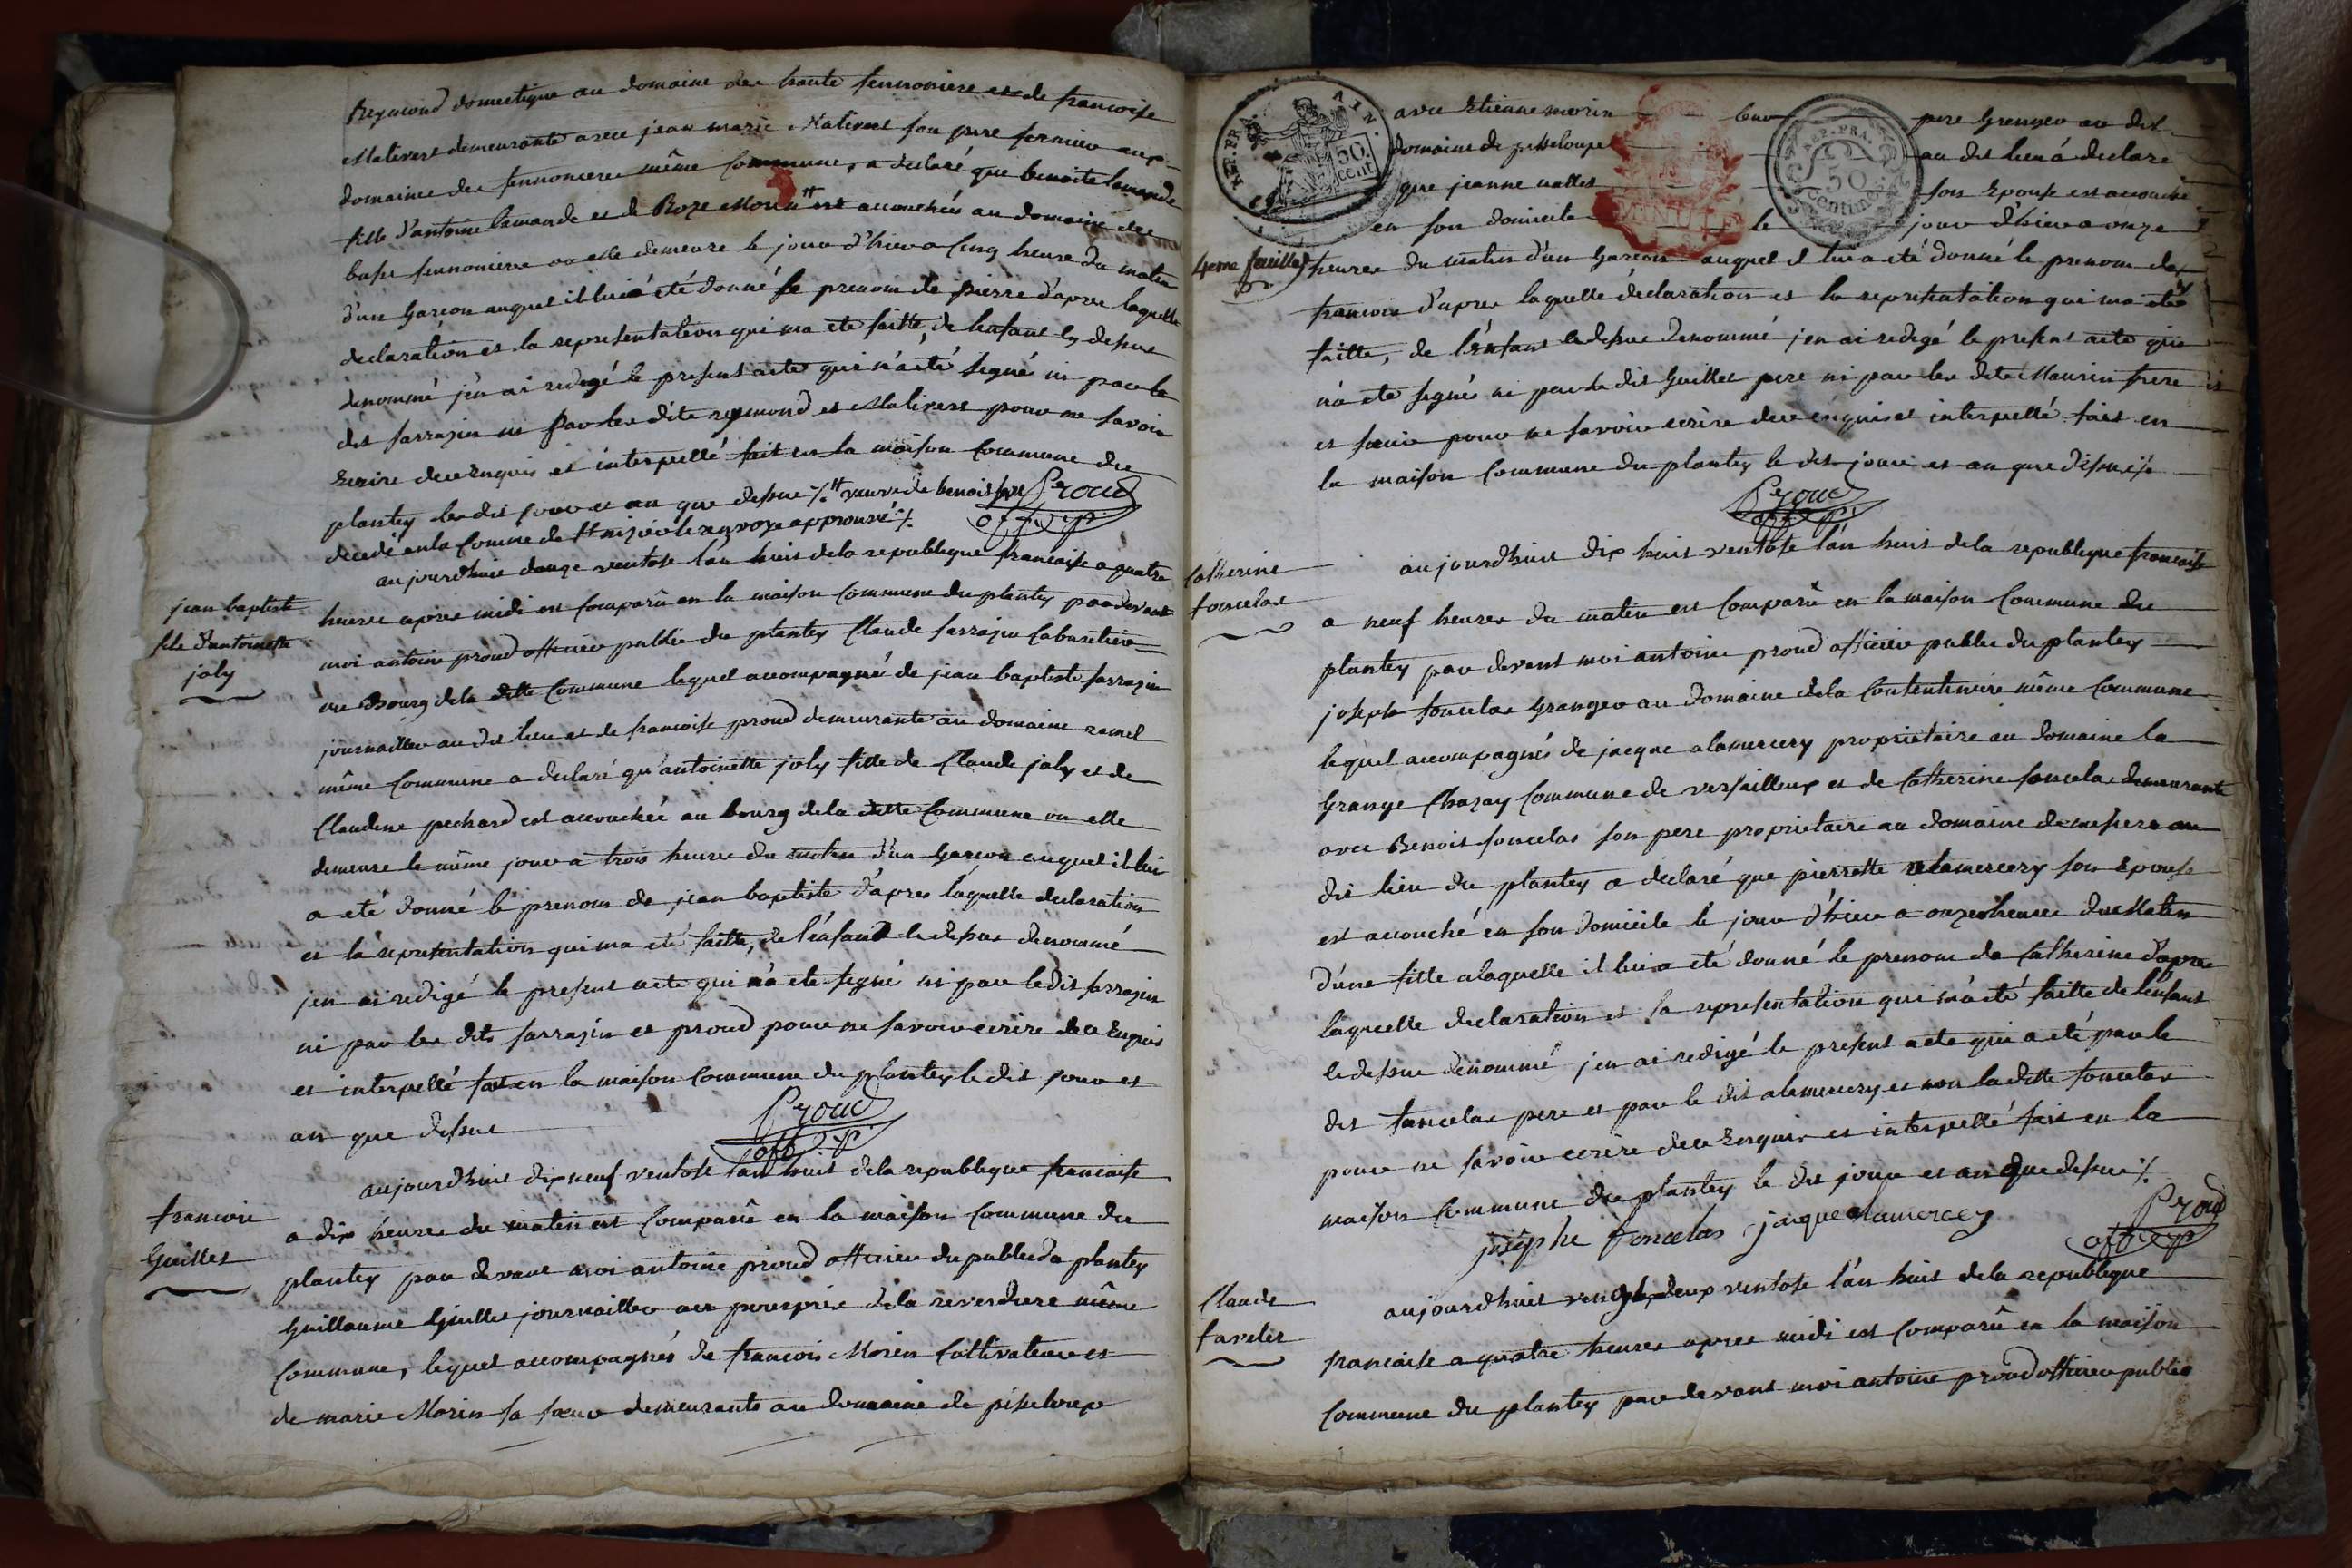 Reymond domestique au domaine des haute sennoniere et de francoise
Malivert demeurante avec jean marie Malivert son pere fermier aux
domaine des sennoniere même Commune, a declaré que benoite lamande
fille d'antoine lamande et de Roze Morin # est accouchée au domaine des
basse sennoniere ou elle demeure le jour d'hier a Cinq heure du matin
d'un Garcon auquel il lui a été donné le prenom de pierre d'apres laquelle
declaration et la representation qui ma eté faitte, de lenfant cy dessus
denommé j'en ai redigé le present acte qui n'a été signé ni par le
dit sarrazin ni Par les dits reymond et Malivert pour ne savoir
Ecrire de ce Enquis et interpellé fait en la maison Commune du
plantey les dit jour et an que dessus ⁒ # veuve de benoit
decedé en la Comne de le renvoye approuvé ⁒
Proud
off. p.
jean baptiste
fils d'antoinette
joly
aujourdhuit douze ventose l'an huit de la republique francaise a quatre
heures apres midi est Comparû en la maison Commune du plantey par devant
moi antoine proud officier public du plantey Claude sarrazin Cabaretier
au Bourg de la ditte Commune lequel accompagné de jean baptiste sarrazin
journaillier au dit lieu et de francoise proud demeurante au domaine ramel
même Commune a declaré qu'antoinette joly fille de Claude joly et de
Claudine pechard est accouchée au bourg de la ditte Commune ou elle
demeure le même jour a trois heures du matin d'un Garcon auquel il lui
a eté donné le prenom de jean baptiste d'apres laquelle declaration
et la representation qui ma eté faitte, de l'enfant le dessus denommé
jen ai redigé le present acte qui n'a ete signé ni par le dit sarrazin
ni par les dits sarrazin et proud pour ne savoir ecrire de ce Enquis
et interpellé fait en la maison Commune du plantey le dit jour et
an que dessus
Proud
off. p.
francois
Guillet
aujourdhuit dix neuf ventose l'an huit de la republique francaise
a dix heures du matin est Comparû en la maison Commune du
plantey par devant moi antoine proud officier du public du plantey
Guillaume Guillet journaillier au pourprix de la reverdiere même
Commune, lequel accompagnés de francois Morin Cultivateur et
de marie Morin sa sœur demeurants au domaine de pisseloup
REP. FRA. AIN.
50. cent.
REP. FRA.
50 Centimes
4eme feuillet
avec Etienne morin leur pere Granger au dit
domaine de pisseloup au dit lieu a declare
que jeanne son Epouse est accouché
en son domicile le jour d'hier a onze
heures du matin d'un Garcon auquel il lui a eté donné le prenom de
francois d'apres laquelle declaration et la representation qui ma eté
faitte, de l'enfant ledessus denommé jen ai redigé le present acte qui
n'a ete signés ni par le dit Guillet pere ni par les dits Maurin frere
et soeur pour ne savoir ecrire de ce enquis et interpellé fait en
la maison Commune du plantey le dit jour et an que dessus
Proud
off. p.
Catherine
foncelas
aujourdhuit dix huit ventose l'an huit de la republique francaise
a neuf heures du matin est Comparû en la maison Commune du
plantey par devant moi antoine proud officier public du plantey
joseph foncelas Granger au domaine de la Contentiniere même Commune
lequel accompagnés de jacque alamercery proprietaire au domaine la
Grange Chazay Commune de versailleux et de Catherine foncelas demeurante
avec Benoit foncelas son pere proprietaire au domaine de au
dit lieu du plantey a declaré que pierrette alamercery son Epouse
est accouché en son domicile le jour d'hier a onze heures du Matin
d'une fille a laquelle il lui a eté donné le prenom de Catherine d'apres
laquelle declaration et la representation qui m'a eté faitte de l'enfant
le dessus denommé jen ai redigé le present acte qui a eté par le
dit foncelas pere et par le dit alamercery et non la ditte foncelas
pour ne savoir ecrire de ce Enquis et interpellé fait en la
maison Commune du plantey le dit jour et an que dessus ⁒
joseph foncelas jaque alamercery
Proud
off. p.
Claude
favelet
aujourdhuit vingt deux ventose l'an huit de la republique
francaise a quatre heures apres midi est Comparû en la maison
Commune du plantey par devant moi antoine proud officier public